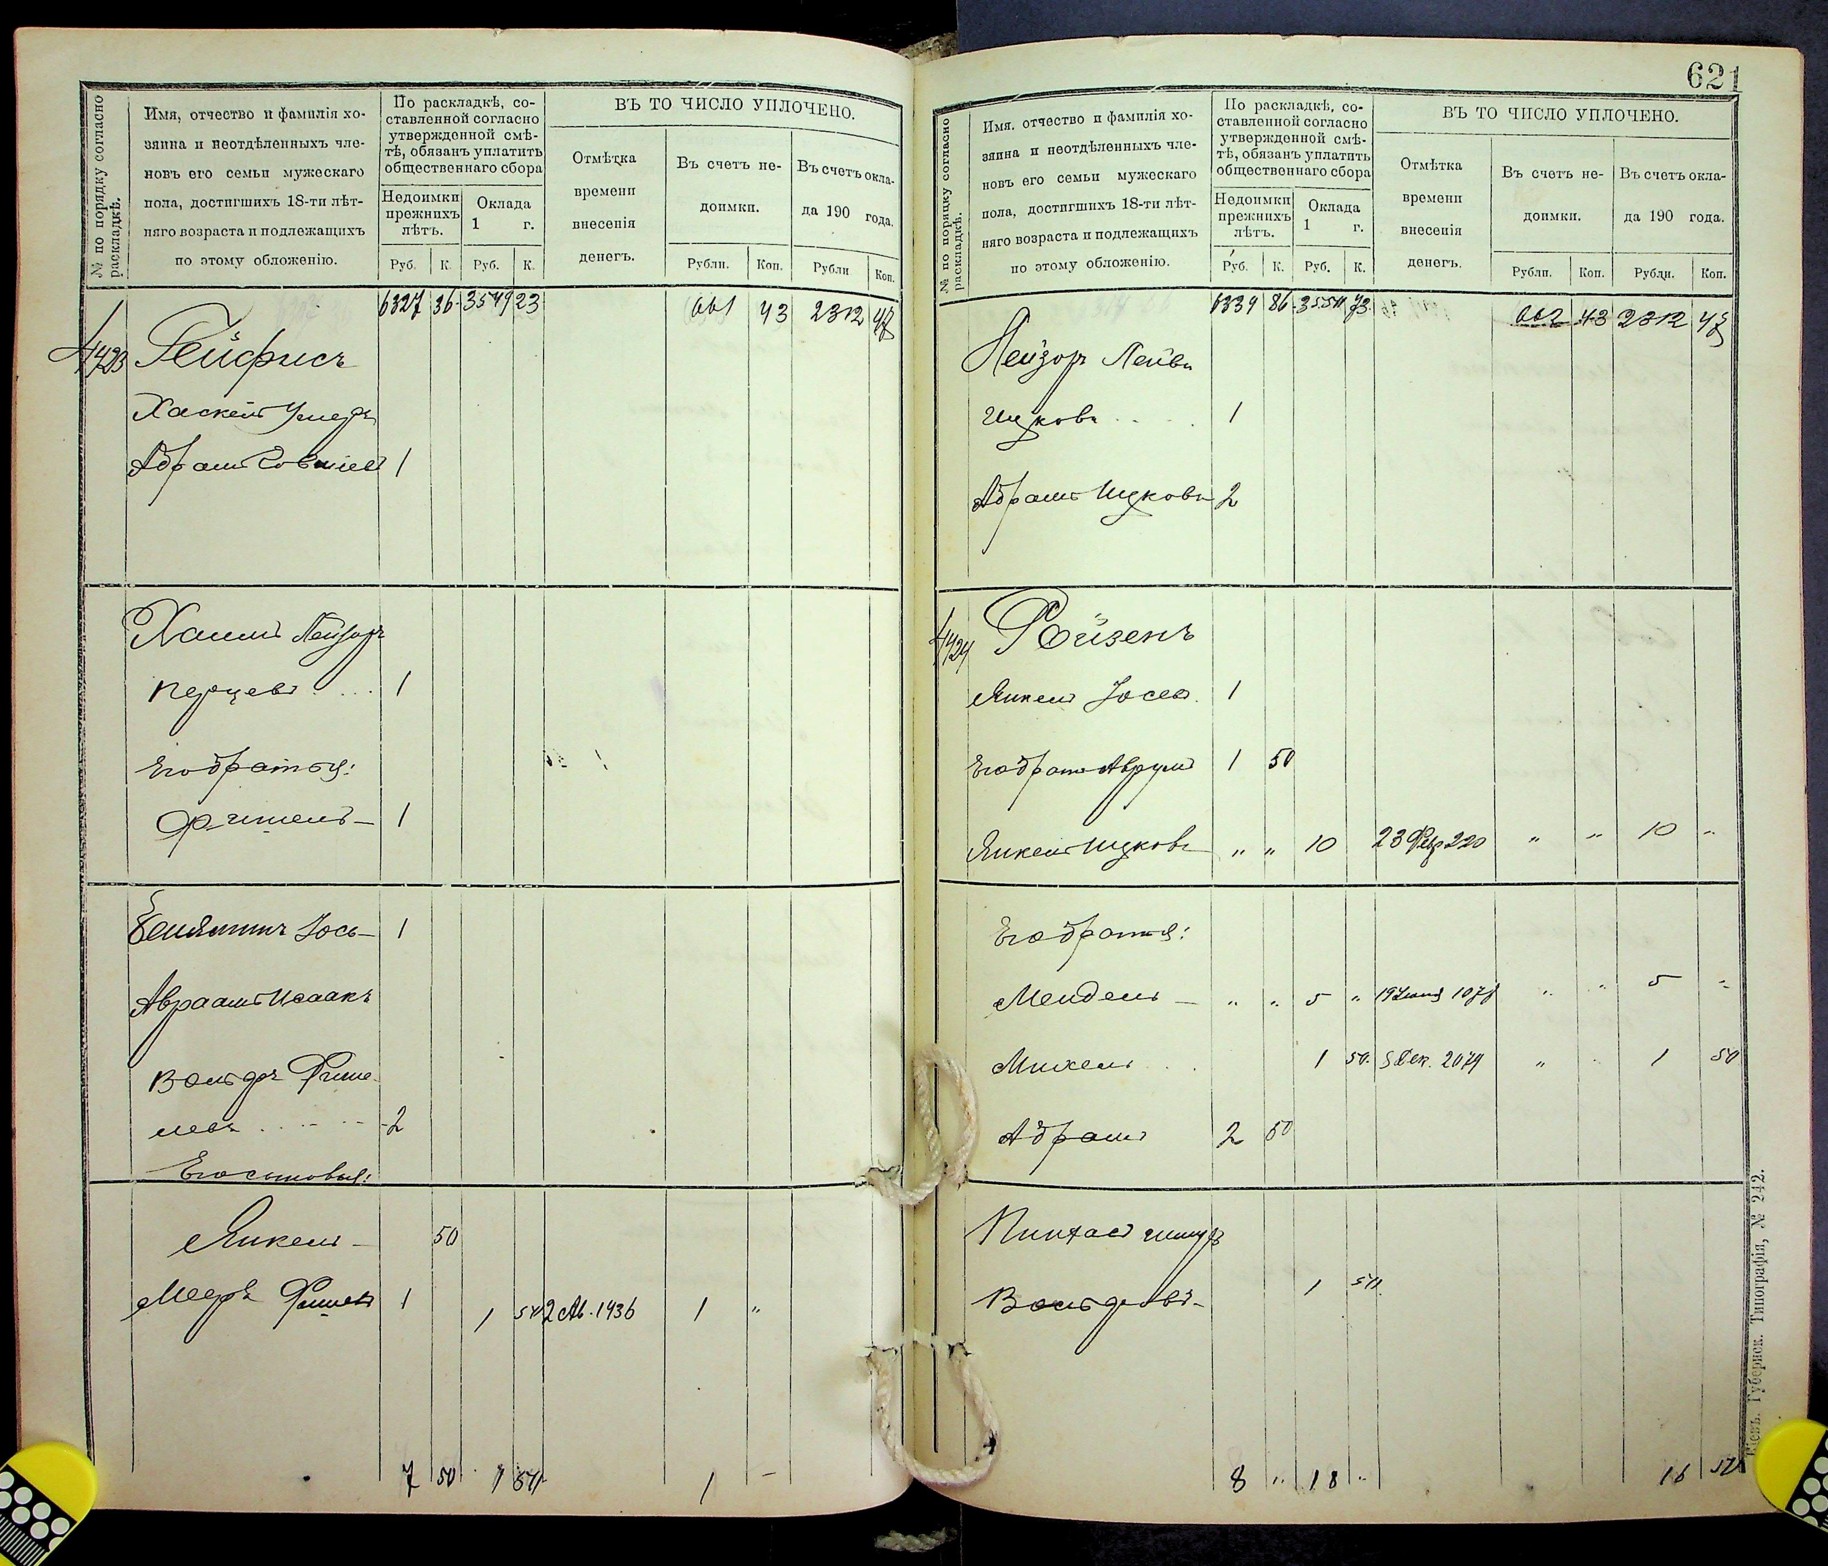 № по порядку согласно раскладкѣ.
Имя, отчество и фамилія хо-
зяина и неотдѣленныхъ чле-
новъ его семьи мужескаго
пола, достигшихъ 18-ти лѣт-
няго возраста и подлежащихъ
по этому обложенію.
По раскладкѣ, со-
ставленной согласно
утвержденной смѣ-
тѣ, обязанъ уплатить
общественнаго сбора
Недоимки
прежнихъ
лѣтъ.
Оклада
1 г.
ВЪ ТО ЧИСЛО УПЛОЧЕНО.
Отмѣтка
времени
внесенія
денегъ.
Въ счетъ не-
доимки.
Въ счетъ окла-
да 190 года.
Руб. К. Руб. К. Рубли. Коп. Рубли Коп.
6327 36 3549 23 661 43 2312 47
4423 Гейфисъ
Хаскель
Абрамъ 1
Хаимъ Лейзоръ
Перцевъ 1
Его братья:
Фришель 1
Беняминъ Іось 1
Авраамъ Исаакъ
Вольфъ Фише
левъ 2
Его сыновья:
Янкель 50
1 1 50 2 Ав. 1936 1 "
7 50 1 50 1 -
621
№ по порядку согласно раскладкѣ.
Имя, отчество и фамилія хо-
зяина и неотдѣленныхъ чле-
новъ его семьи мужескаго
пола, достигшихъ 18-ти лѣт-
няго возраста и подлежащихъ
по этому обложенію.
По раскладкѣ, со-
ставленной согласно
утвержденной смѣ-
тѣ, обязанъ уплатить
общественнаго сбора
Недоимки
прежнихъ
лѣтъ.
Оклада
1 г.
ВЪ ТО ЧИСЛО УПЛОЧЕНО.
Отмѣтка
времени
внесенія
денегъ.
Въ счетъ не-
доимки.
Въ счетъ окла-
да 190 года.
Руб. К. Руб. К. Рубли. Коп. Рубли. Коп.
86 662 43 2312 47
Лейзоръ Лейви
Ицковъ 1
Абрамъ Ицковъ 2
4424 Ройзенъ
Янкель Іосев. 1
Его братъ Аврумъ 1 50
Янкель Ицковъ " " 10 23 Февр 220 " " 10 "
Его братья:
Мендель " " 5 " 19 Іюня 107 " " 5 "
Михель 1 50 5 Дек. 2074 " 1 50
Абрамъ 2 50
Пинхасъ
Вольфовъ 1 50
8 " 18 " 16 50
Кіевъ. Губернск. Типографія, № 242.